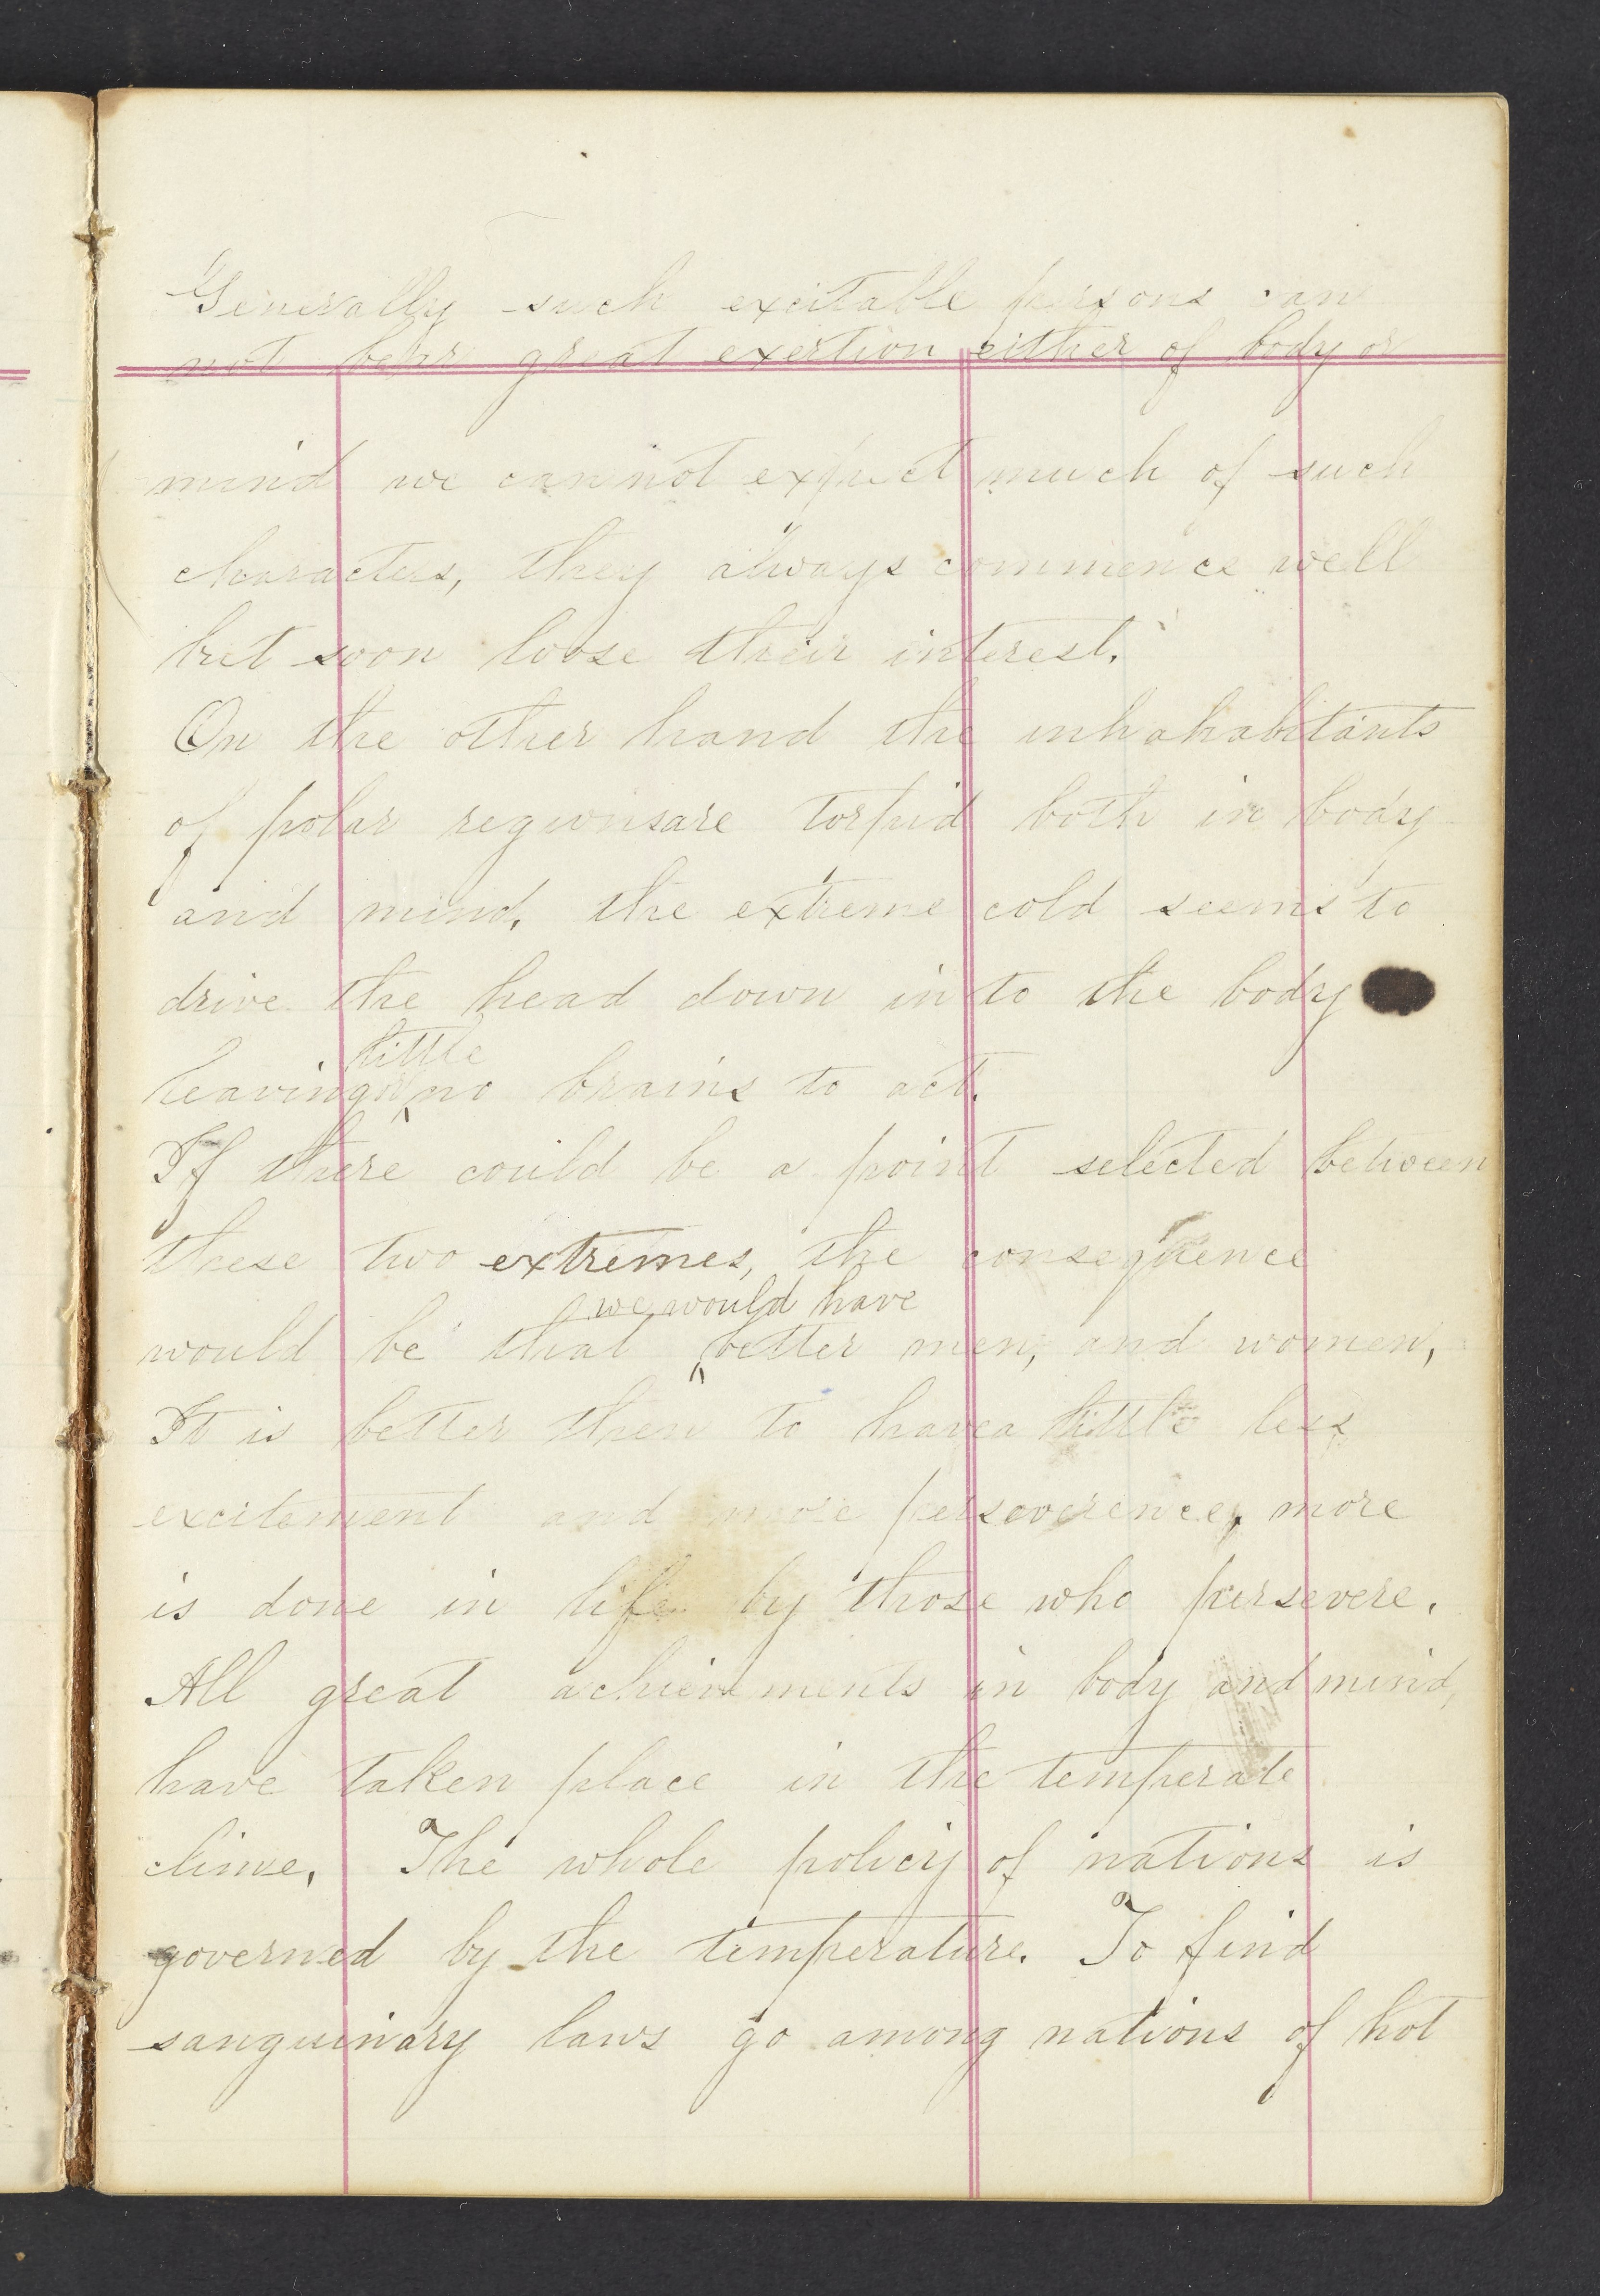 Generally such excitable persons can
not bear great exertion either of body or
mind we cannot expect much of such
characters, they always commence well
but soon loose their interest.
On the other hand the inhahabitants
of polar regions are torpid both in body
and mind, the extreme cold seems to
drive the head down in to the body
little
leaving or no brains to act.
If there could be a point selected between
these two extremes, the consequence
we would have
would be that better men, and women,
It is better then to have a little less
excitement and more perseverence, more
is done in life by those who persevere.
All great achievements in body and mind,
have taken place in the temperate
clime. The whole policy of nations is
governed by the temperature. To find
sanguinary laws go among nations of hot